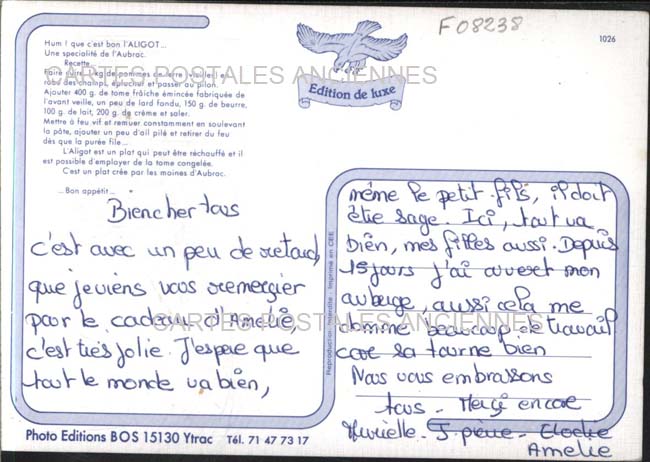 F08238
1026
Hum ! que c'est bon l'ALIGOT...
Une specialité de l'Aubrac.
Recette...
Faire cuire 1 kg de pommes de terre
robe des champs, éplucher et passer au pilon.
Ajouter 400 g. de tome fraîche émincée fabriquée de
l'avant veille, un peu de lard fondu, 150 g. de beurre,
100 g. de lait, 200 g. de crème et saler.
Mettre à feu vif et remuer constamment en soulevant
la pâte, ajouter un peu d'ail pilé et retirer du feu
dès que la purée file...
L'Aligot est un plat qui peut être réchauffé et il
est possible d'employer de la tome congelée.
C'est un plat crée par les moines d'Aubrac.
...Bon appétit...
CARTES POSTALES ANCIENNES
Edition de luxe
Bien cher tous
c'est avec un peu de retard,
que je viens vous remerçier
pour le cadeau d'Amélie
c'est très jolie. J'espère que
tout le monde va bien,
même le petit-fils, il doit
être sage. Ici, tout va
bien, mes filles aussi. Depuis
15 jours j'ai ouvert mon
auberge, aussi cela me
donne beaucoup de travail
car sa tourne bien
Nous vous embrassons
tous - Merçi encore
Murielle - J. pierre - Elodie
Amelie
CARTES POSTALES ANCIENNES
Reproduction Interdite - Imprimé en CEE
Photo Editions BOS 15130 Ytrac Tél. 71 47 73 17